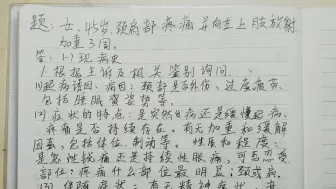 题：女，45岁，颈肩部疼痛并向左上肢放射
加重3周。
答：1、现病史
1.根据主诉及相关鉴别询问
(1)起病诱因、病因：颈部是否外伤、过度疲劳、
包括睡眠质姿势等。
(2)症状的特点：是突然发病还是缓慢起病，
疼痛是否持续存在。有无加重和缓解
因素，包括体位、制动等。性质和程度：
是急性锐痛还是持续性胀痛，可否忍受
部位：疼痛什么部位最明显；颈或肩。
(3)伴随症状：有无精神症状、